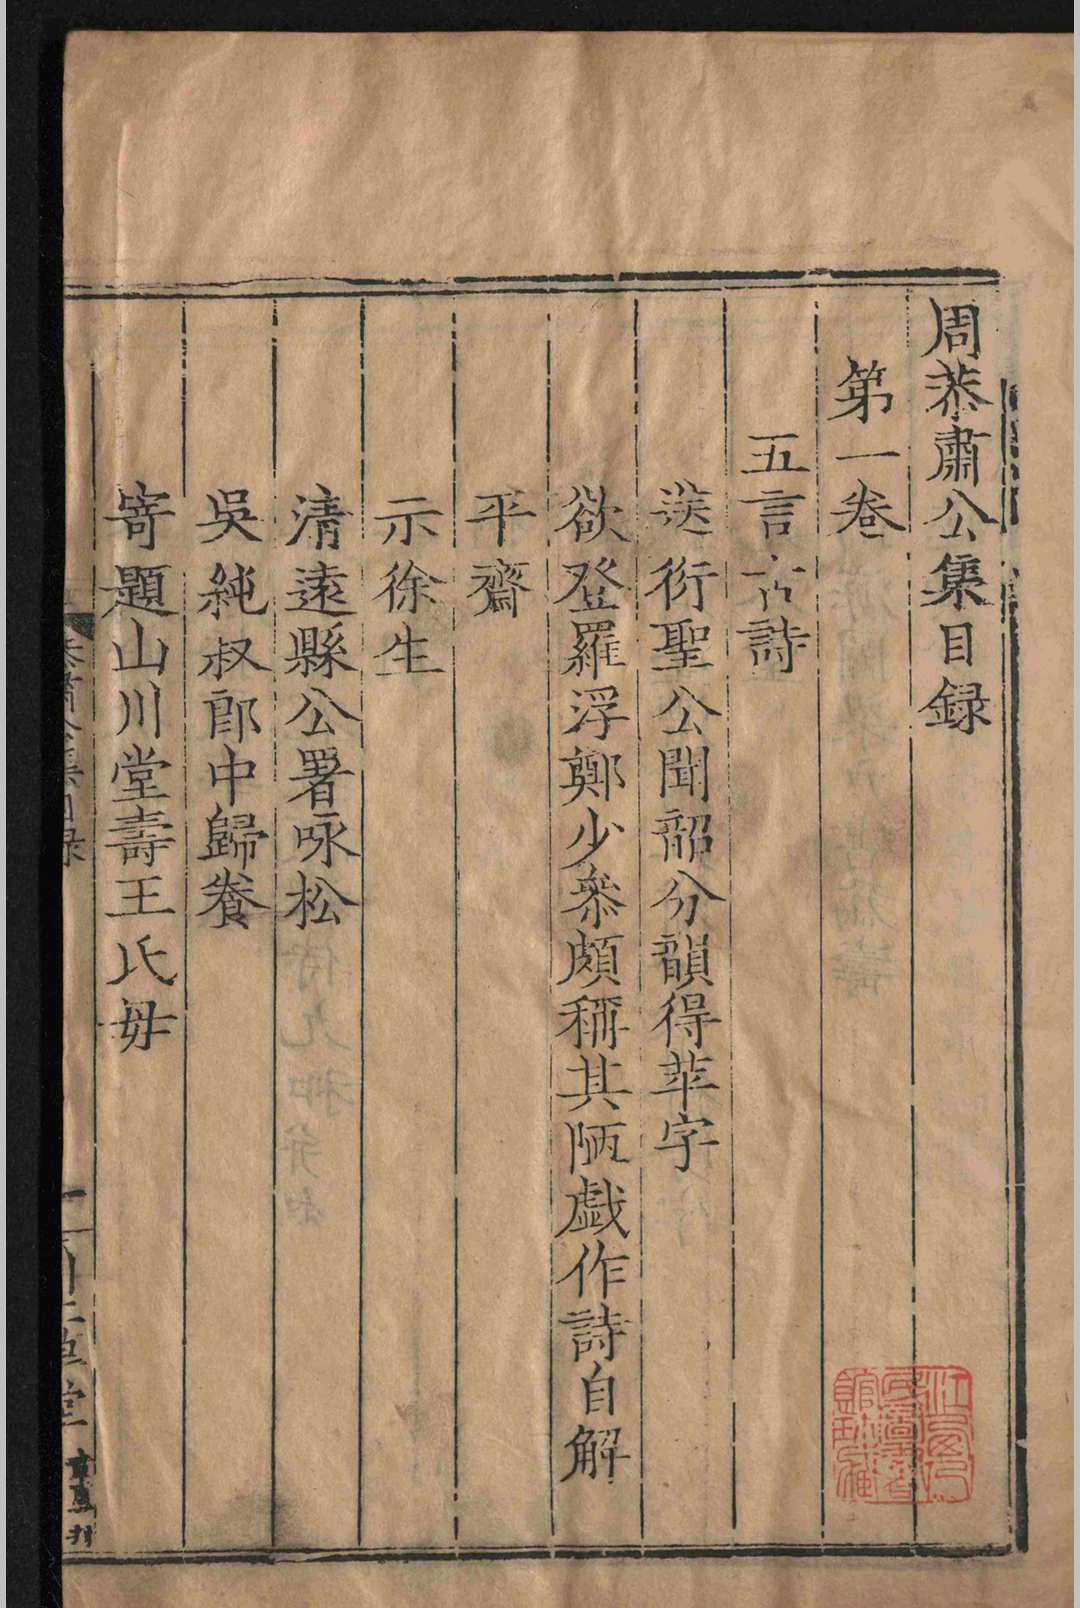 周恭肅公集目録
第一卷
五言古詩
送衍聖公聞韶分韻得苹字
欲登羅浮鄭少叅頗稱其陋戯作詩自解
平齋
示徐生
清遠縣公署咏松
吳純叔郎中歸養
寄題山川堂壽王氏毋
恭肅公集目録
一
川上草堂